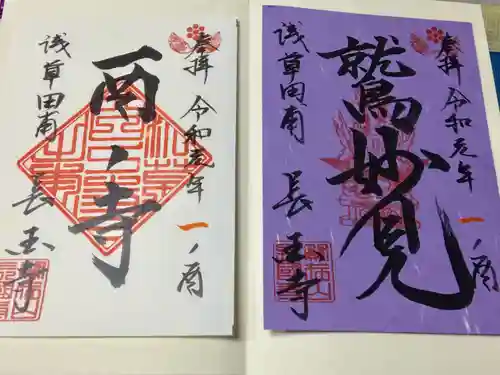 奉拝 令和元年 一ノ酉
鷲妙見
浅草田甫 長国寺
奉拝 令和元年 一ノ酉
酉ノ寺
浅草田甫 長国寺